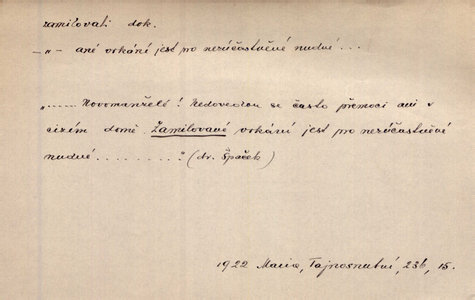 zamilovati dok.
–„– ané vrkání jest pro nezúčastněné nudné...
„...... Novomanželé! Nedovedou se často přemoci ani v
cizím domě Zamilované vrkání jest pro nezúčastněné
nudné.........." (dr. Špaček)
1922 Maria, Tajnosnubní, 236, 15.